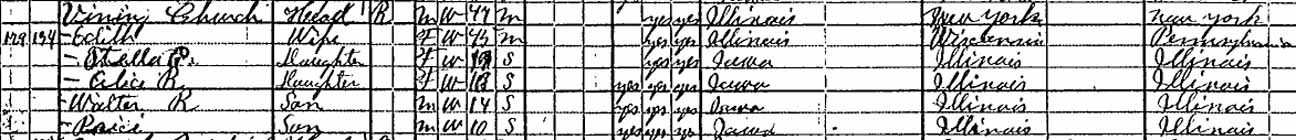 Vining Church Head R M W 47 M yes yes Illinois New York New York
129 134 Edith Wife F W 45 M yes yes Illinois Wisconsin Pennsylvania
Stella Daughter F W S yes yes Iowa Illinois Illinois
Alice R. Daughter F W S yes yes yes Iowa Illinois Illinois
Walter R Son M W 14 S yes yes yes Iowa Illinois Illinois
Son M W 10 S yes yes yes Iowa Illinois Illinois